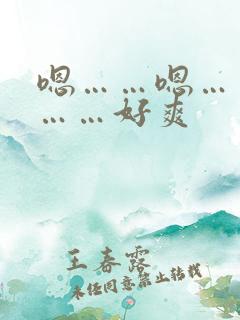 嗯……嗯…
………好爽
王春露
未经同意禁止转载